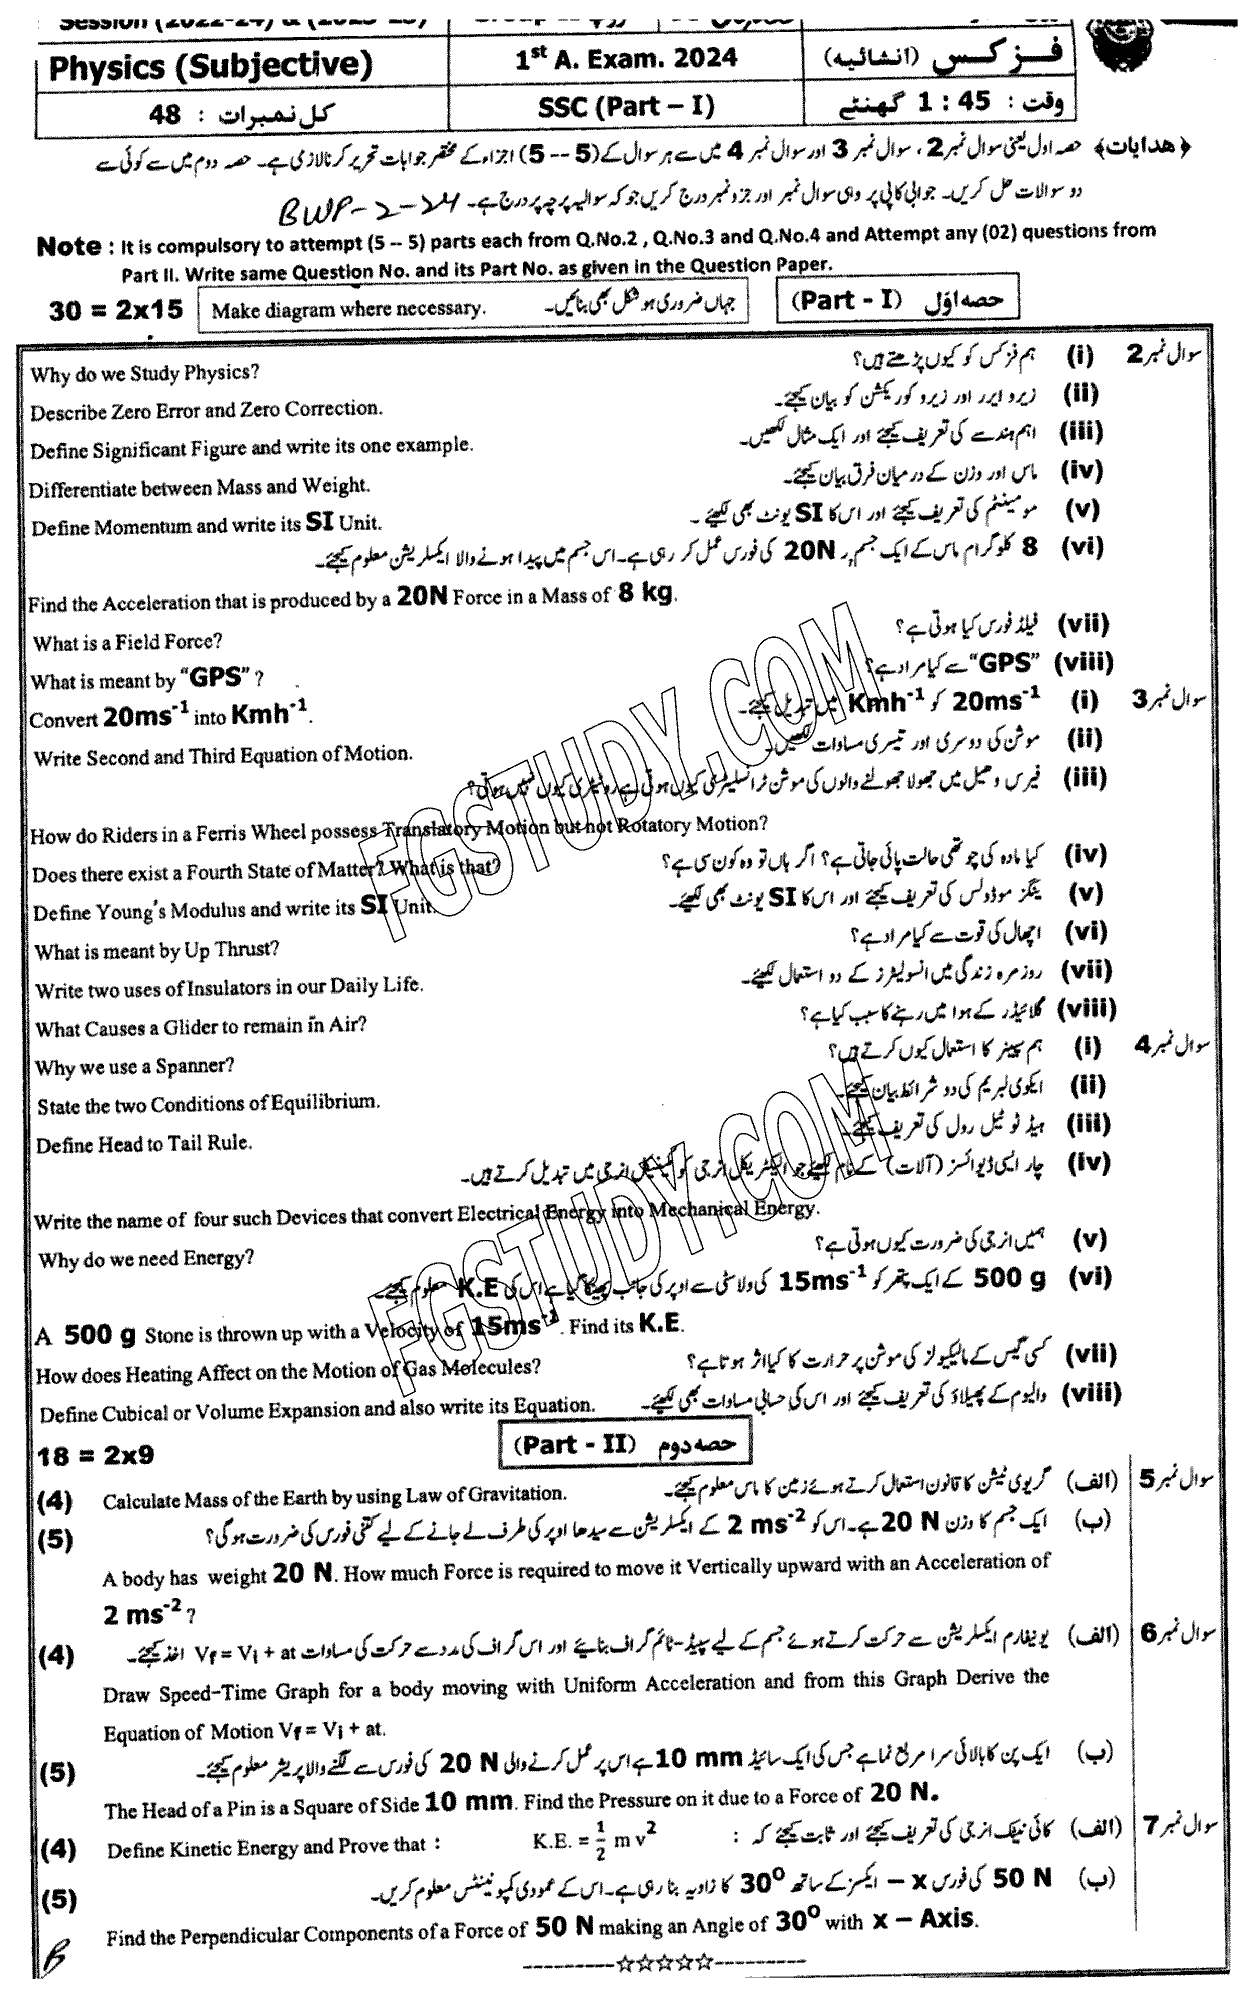 Physics (Subjective)
1st A. Exam. 2024
فزکس (انشائیہ)
کل نمبرات : 48
SSC (Part – I)
وقت : 1 : 45 گھنٹے
﴿ہدایات﴾ حصہ اول یعنی سوال نمبر 2 ، سوال نمبر 3 اور سوال نمبر 4 میں سے ہر سوال کے (5 -- 5) اجزاء کے مختصر جوابات تحریر کرنا لازمی ہے۔ حصہ دوم میں سے کوئی سے
دو سوالات حل کریں۔ جوابی کاپی پر وہی سوال نمبر اور جزو نمبر درج کریں جو کہ سوالیہ پرچہ پر درج ہے۔ BWP-2-24
Note : It is compulsory to attempt (5 -- 5) parts each from Q.No.2 , Q.No.3 and Q.No.4 and Attempt any (02) questions from
Part II. Write same Question No. and its Part No. as given in the Question Paper.
30 = 2x15 Make diagram where necessary. جہاں ضروری ہو شکل بھی بنائیں۔ (Part - I) حصہ اوّل
سوال نمبر 2 (i) ہم فزکس کو کیوں پڑھتے ہیں؟
Why do we Study Physics?
(ii) زیرو ایرر اور زیرو کوریکشن کو بیان کیجئے۔
Describe Zero Error and Zero Correction.
(iii) اہم ہندسے کی تعریف کیجئے اور ایک مثال لکھیں۔
Define Significant Figure and write its one example.
(iv) ماس اور وزن کے درمیان فرق بیان کیجئے۔
Differentiate between Mass and Weight.
(v) مومینٹم کی تعریف کیجئے اور اس کا SI یونٹ بھی لکھیے ۔
Define Momentum and write its SI Unit.
(vi) 8 کلوگرام ماس کے ایک جسم پر 20N کی فورس عمل کر رہی ہے۔ اس جسم میں پیدا ہونے والا ایکسلریشن معلوم کیجئے۔
Find the Acceleration that is produced by a 20N Force in a Mass of 8 kg.
(vii) فیلڈ فورس کیا ہوتی ہے؟
What is a Field Force?
(viii) "GPS" سے کیا مراد ہے؟
What is meant by "GPS" ?
سوال نمبر 3 (i) 20ms⁻¹ کو Kmh⁻¹ میں تبدیل کیجئے۔
Convert 20ms⁻¹ into Kmh⁻¹.
(ii) موشن کی دوسری اور تیسری مساوات لکھیں۔
Write Second and Third Equation of Motion.
(iii) فیرس وہیل میں جھولا جھولنے والوں کی موشن ٹرانسلیٹری کیوں ہوتی ہے روٹیٹری کیوں نہیں ہوتی؟
How do Riders in a Ferris Wheel possess Translatory Motion but not Rotatory Motion?
(iv) کیا مادہ کی چوتھی حالت پائی جاتی ہے؟ اگر ہاں تو وہ کون سی ہے؟
Does there exist a Fourth State of Matter? What is that?
(v) ینگز موڈولس کی تعریف کیجئے اور اس کا SI یونٹ بھی لکھیے۔
Define Young's Modulus and write its SI Unit.
(vi) اچھال کی قوت سے کیا مراد ہے؟
What is meant by Up Thrust?
(vii) روزمرہ زندگی میں انسولیٹرز کے دو استعمال لکھیے۔
Write two uses of Insulators in our Daily Life.
(viii) گلائیڈر کے ہوا میں رہنے کا سبب کیا ہے؟
What Causes a Glider to remain in Air?
سوال نمبر 4 (i) ہم سپینر کا استعمال کیوں کرتے ہیں؟
Why we use a Spanner?
(ii) ایکوی لبریم کی دو شرائط بیان کیجئے۔
State the two Conditions of Equilibrium.
(iii) ہیڈ ٹو ٹیل رول کی تعریف کیجئے۔
Define Head to Tail Rule.
(iv) چار ایسی ڈیوائسز (آلات) کے نام لکھیے جو الیکٹریکل انرجی کو مکینیکل انرجی میں تبدیل کرتے ہیں۔
Write the name of four such Devices that convert Electrical Energy into Mechanical Energy.
(v) ہمیں انرجی کی ضرورت کیوں ہوتی ہے؟
Why do we need Energy?
(vi) 500 g کے ایک پتھر کو 15ms⁻¹ کی ولاسٹی سے اوپر کی جانب پھینکا گیا ہے اس کی K.E معلوم کیجئے۔
A 500 g Stone is thrown up with a Velocity of 15ms⁻¹. Find its K.E.
(vii) کسی گیس کے مالیکیولز کی موشن پر حرارت کا کیا اثر ہوتا ہے؟
How does Heating Affect on the Motion of Gas Molecules?
(viii) والیوم کے پھیلاؤ کی تعریف کیجئے اور اس کی حسابی مساوات بھی لکھیے۔
Define Cubical or Volume Expansion and also write its Equation.
18 = 2x9 (Part - II) حصہ دوم
سوال نمبر 5 (الف) گریوی ٹیشن کا قانون استعمال کرتے ہوئے زمین کا ماس معلوم کیجئے۔
(4) Calculate Mass of the Earth by using Law of Gravitation.
(ب) ایک جسم کا وزن 20 N ہے۔ اس کو 2 ms⁻² کے ایکسلریشن سے سیدھا اوپر کی طرف لے جانے کے لیے کتنی فورس کی ضرورت ہوگی؟ (5)
A body has weight 20 N. How much Force is required to move it Vertically upward with an Acceleration of
2 ms⁻² ?
سوال نمبر 6 (الف) یونیفارم ایکسلریشن سے حرکت کرتے ہوئے جسم کے لیے سپیڈ-ٹائم گراف بنائیے اور اس گراف کی مدد سے حرکت کی مساوات Vf = Vi + at اخذ کیجئے۔ (4)
Draw Speed-Time Graph for a body moving with Uniform Acceleration and from this Graph Derive the
Equation of Motion Vf = Vi + at.
(ب) ایک پن کا بالائی سرا مربع نما ہے جس کی ایک سائیڈ 10 mm ہے اس پر عمل کرنے والی 20 N کی فورس سے لگنے والا پریشر معلوم کیجئے۔ (5)
The Head of a Pin is a Square of Side 10 mm. Find the Pressure on it due to a Force of 20 N.
سوال نمبر 7 (الف) کائی نیٹک انرجی کی تعریف کیجئے اور ثابت کیجئے کہ :
(4) Define Kinetic Energy and Prove that : K.E. = 1/2 m v²
(ب) 50 N کی فورس x – ایکسز کے ساتھ 30⁰ کا زاویہ بنا رہی ہے۔ اس کے عمودی کمپونینٹس معلوم کریں۔ (5)
Find the Perpendicular Components of a Force of 50 N making an Angle of 30⁰ with x – Axis.
---------☆☆☆☆☆---------
FGSTUDY.COM
FGSTUDY.COM